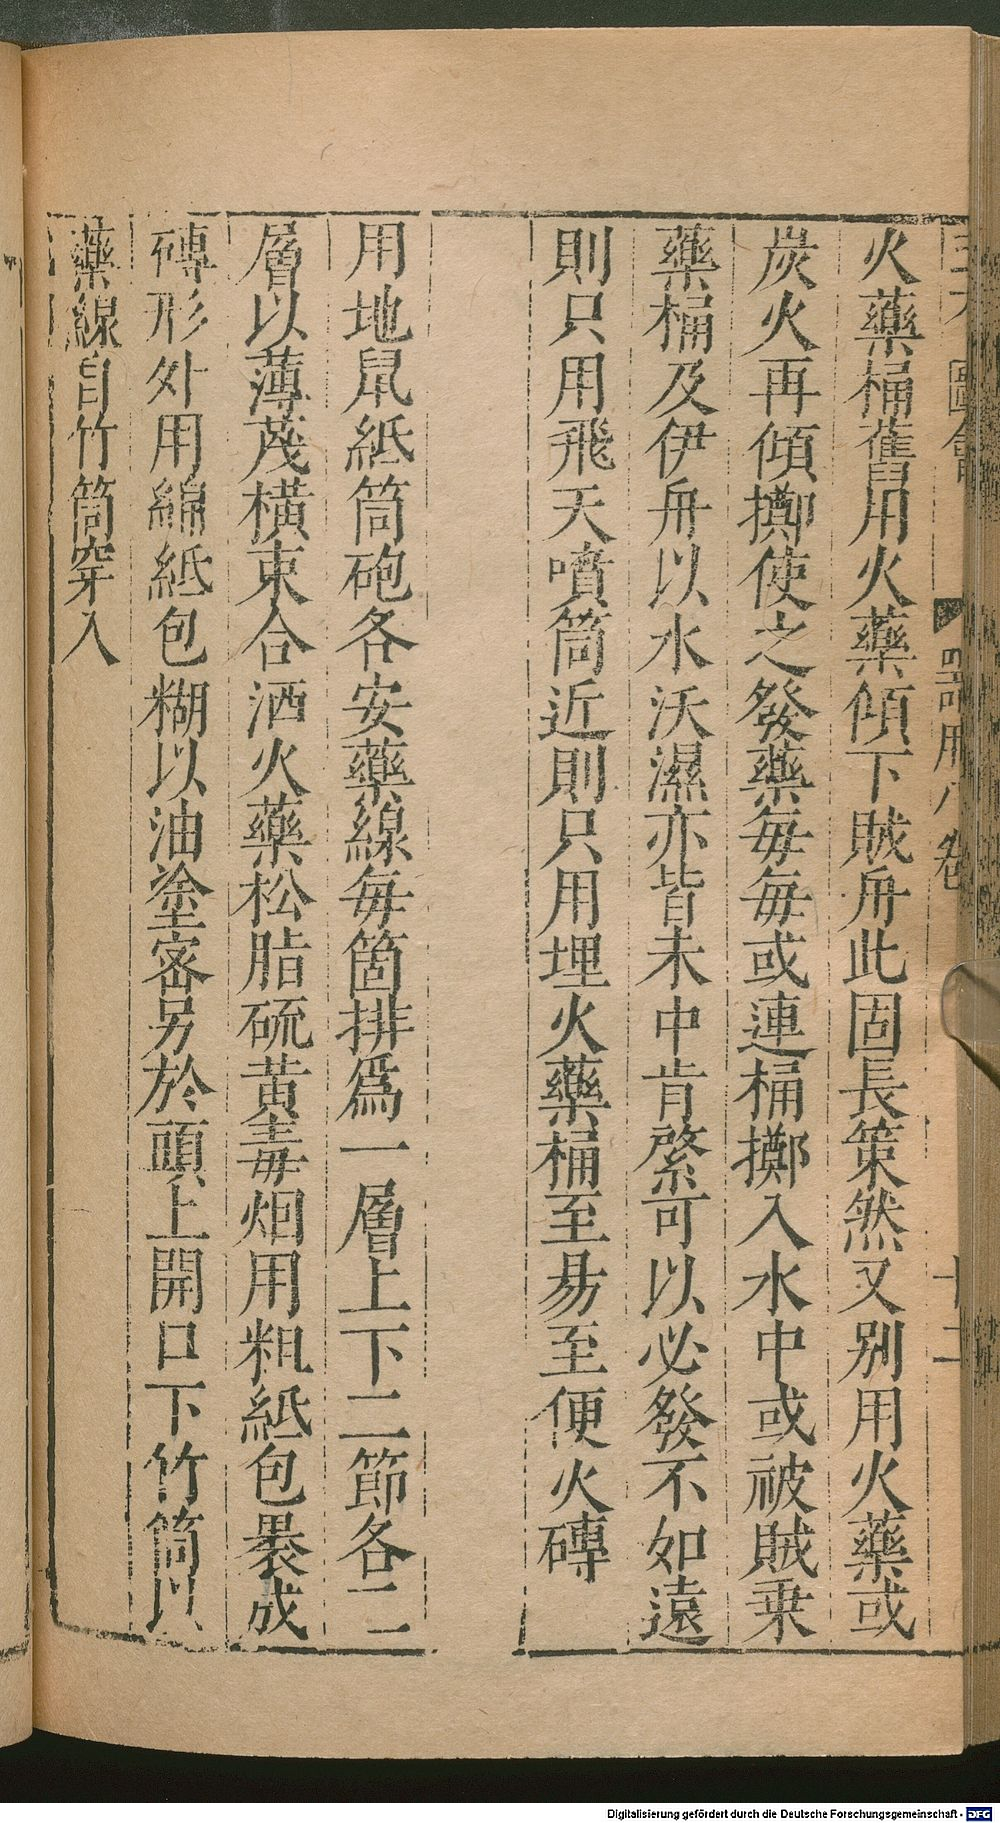 圖會
器用八卷
十二
火藥桶舊用火藥傾下賊舟此固長策然又別用火藥或
炭火再傾擲使之發藥每每或連桶擲入水中或被賊乗
藥桶及伊舟以水沃濕亦皆未中肯綮可以必發不如遠
則只用飛天噴筒近則只用埋火藥桶至易至便火磚
用地鼠紙筒砲各安藥線每箇排爲一層上下二節各二
層以薄茂橫束合洒火藥松脂硫黄毒烟用粗紙包褁成
磚形外用綿紙包糊以油塗密另於頭上開口下竹筒以
藥線自竹筒穿入
Digitalisierung gefördert durch die Deutsche Forschungsgemeinschaft - DFG